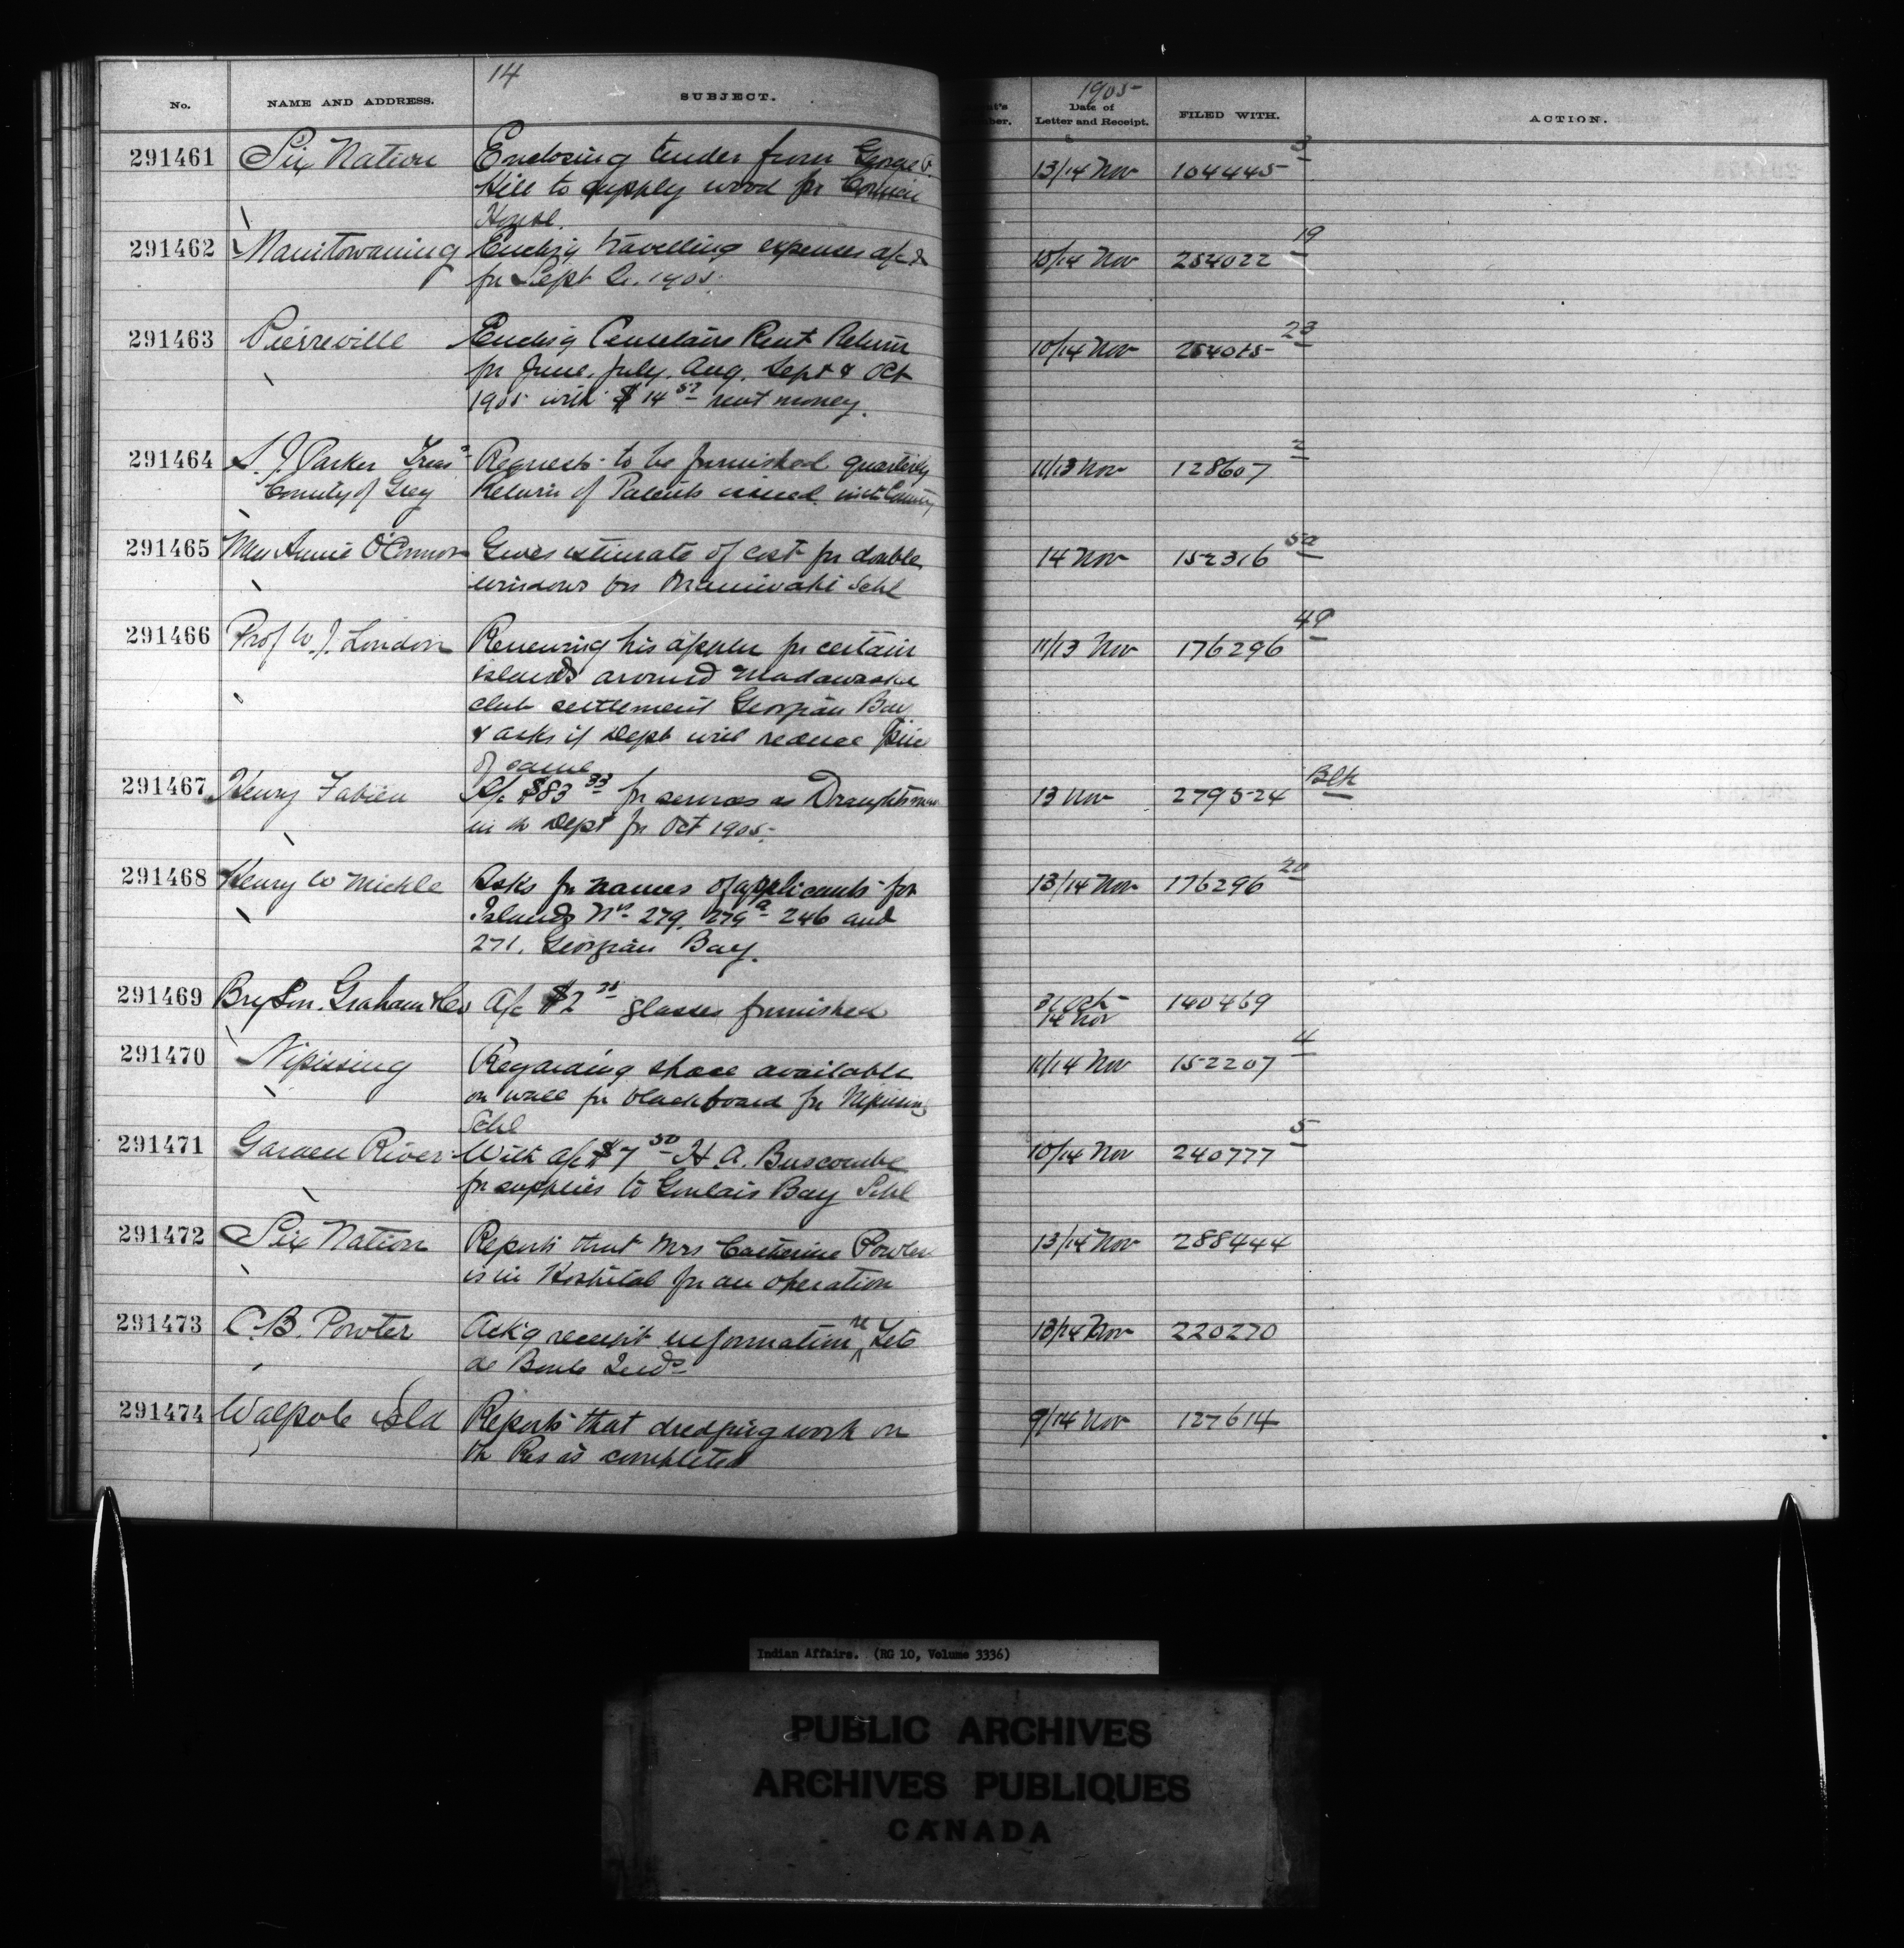 14
1905
No. NAME AND ADDRESS. SUBJECT. Date of Letter and Receipt. FILED WITH. ACTION.
291461 Six Nation Enclosing tender from George 13/14 Nov 104445 3
Hill to supply wood for Council
House.
291462 Manitowaning Enclos'g travelling expenses a/c 10/14 Nov 254022 19
for Sept Qr. 1905.
291463 Pierreville Enclos'g Rent Return 10/14 Nov 254015 23
for June, July, Aug, Sept & Oct
1905 with $14 57 rent money.
291464 S. J. Parker Treasr Requests to be furnished quarterly 11/13 Nov 128607 2
County of Grey Return of Patents issued in the County
291465 Mrs Annie O'Connor Gives estimate of cost for double 14 Nov 152316 50
windows for Maniwaki Schl
291466 Prof W. J. Loudon Renewing his appln for certain 11/13 Nov 176296 49
islands around Madawaska
club settlement Georgian Bay
& asks if Dept will reduce price
of same
291467 Henry Fabien A/c $83 33 for services as Draughtsman 13 Nov 279524 Blk
in the Dept for Oct 1905.
291468 Henry W Mickle Asks for names of applicants for 13/14 Nov 176296 20
Islands Nos 279, 279a 246 and
271, Georgian Bay.
291469 Bryson, Graham & Co A/c $2 glasses furnished 31 Oct 140469
14 Nov
291470 Nipissing Regarding space available 11/14 Nov 152207 4
on wall for blackboard for Nipissing
Schl
291471 Garden River With a/c $7 50 H. A. Buscombe 10/14 Nov 240777 5
for supplies to Goulais Bay Schl
291472 Six Nation Reports that Mrs Catherine Powless 13/14 Nov 288444
is in Hospital for an operation
291473 C. B. Powter Ack'g receipt information re Tete 13/14 Nov 220270
de Boule Inds
291474 Walpole Isld Reports that dredging work on 9/14 Nov 127614
the Res is completed
Indian Affairs. (RG 10, Volume 3336)
PUBLIC ARCHIVES
ARCHIVES PUBLIQUES
CANADA